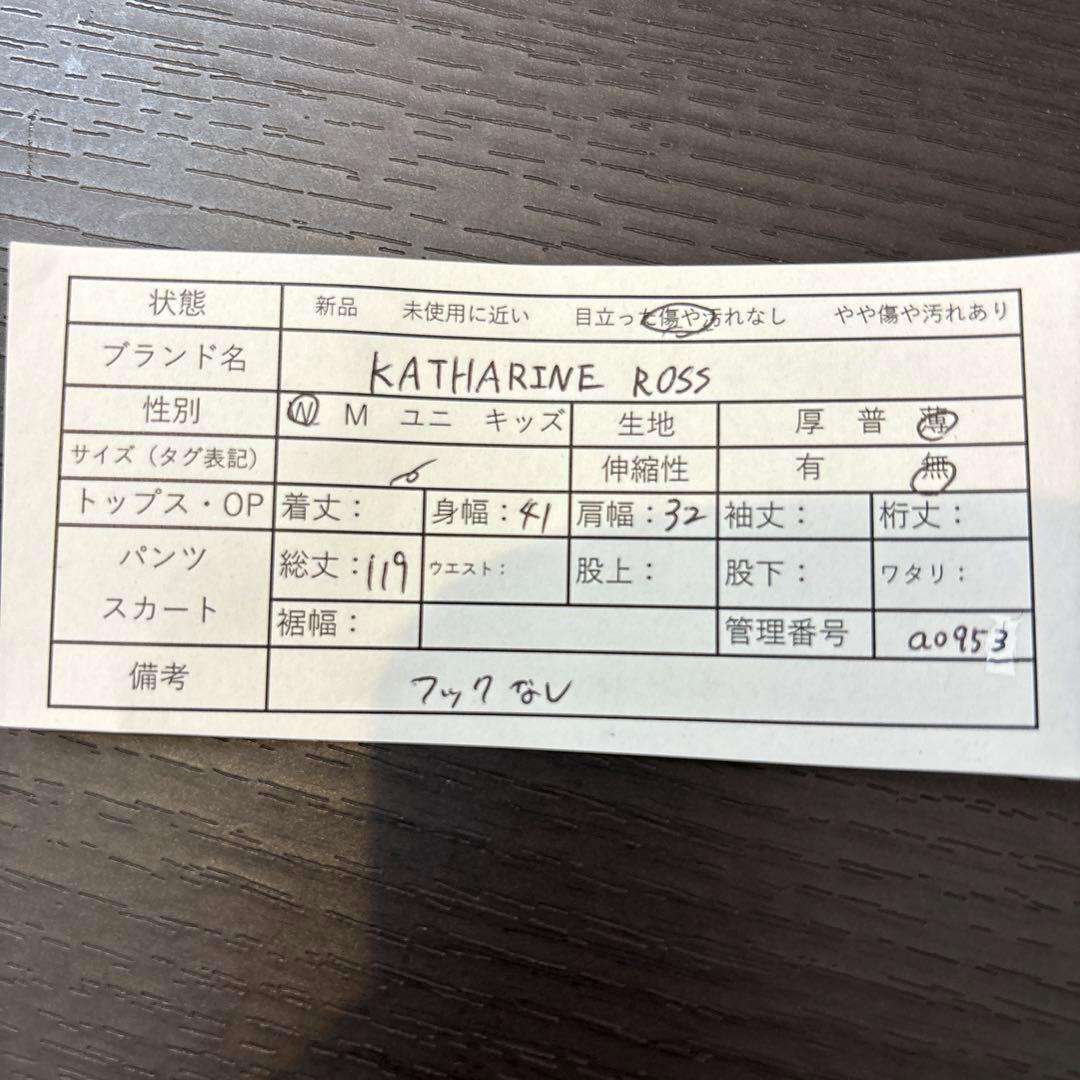 状態 新品 未使用に近い 目立った傷や汚れなし やや傷や汚れあり
ブランド名 KATHARINE ROSS
性別 W M ユニ キッズ 生地 厚 普 薄
サイズ（タグ表記） 6 伸縮性 有 無
トップス・OP 着丈： 身幅：41 肩幅：32 袖丈： 裄丈：
パンツ スカート 総丈：119 ウエスト： 股上： 股下： ワタリ：
裾幅： 管理番号 a0953
備考 フックなし